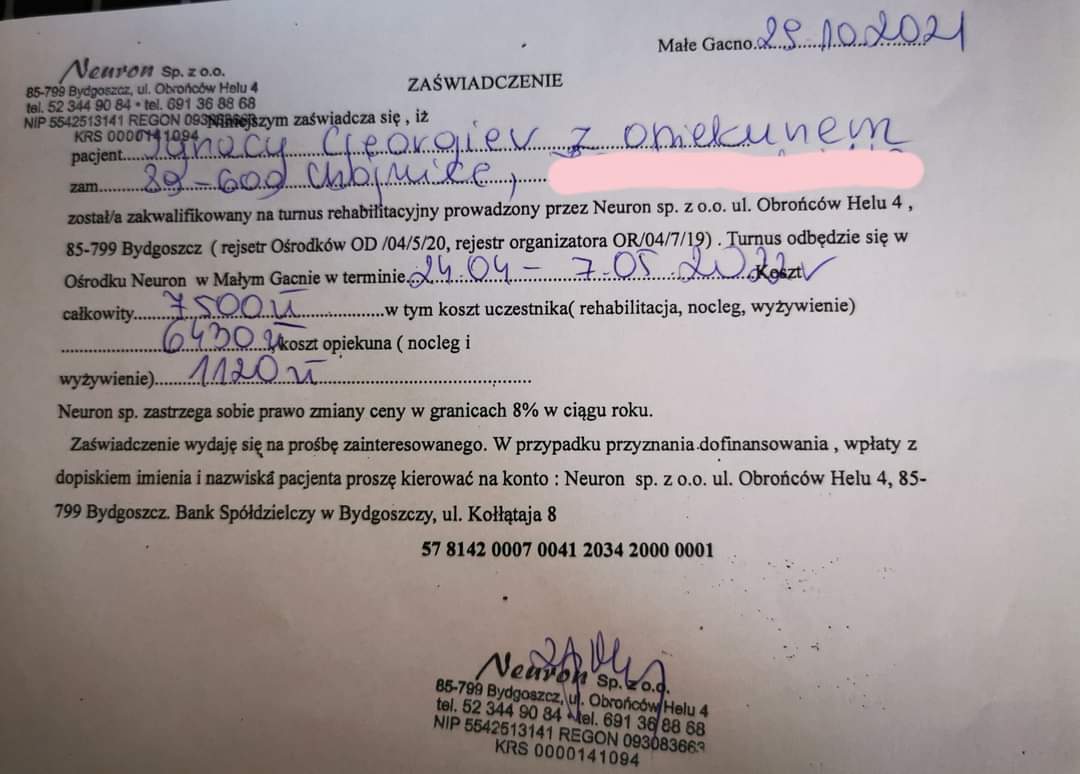 Małe Gacno. 29.10.2021
Neuron Sp. z o.o.
85-799 Bydgoszcz, ul. Obrońców Helu 4
tel. 52 344 90 84 • tel. 691 36 88 68
NIP 5542513141 REGON
KRS 0000141094
ZAŚWIADCZENIE
Niniejszym zaświadcza się , iż
pacjent....Ignacy Georgiev z opiekunem
zam......89-600 Chojnice,
został/a zakwalifikowany na turnus rehabilitacyjny prowadzony przez Neuron sp. z o.o. ul. Obrońców Helu 4 ,
85-799 Bydgoszcz ( rejsetr Ośrodków OD /04/5/20, rejestr organizatora OR/04/7/19) . Turnus odbędzie się w
Ośrodku Neuron w Małym Gacnie w terminie..24.04 - 7.05.2022 Koszt
całkowity.....7500 zł..............w tym koszt uczestnika( rehabilitacja, nocleg, wyżywienie)
....................6430 zł koszt opiekuna ( nocleg i
wyżywienie)......1120 zł.......................................
Neuron sp. zastrzega sobie prawo zmiany ceny w granicach 8% w ciągu roku.
Zaświadczenie wydaję się na prośbę zainteresowanego. W przypadku przyznania dofinansowania , wpłaty z
dopiskiem imienia i nazwiska pacjenta proszę kierować na konto : Neuron sp. z o.o. ul. Obrońców Helu 4, 85-
799 Bydgoszcz. Bank Spółdzielczy w Bydgoszczy, ul. Kołłątaja 8
57 8142 0007 0041 2034 2000 0001
Neuron Sp. z o.o.
85-799 Bydgoszcz, ul. Obrońców Helu 4
tel. 52 344 90 84 • tel. 691 36 88 68
NIP 5542513141 REGON 093083663
KRS 0000141094